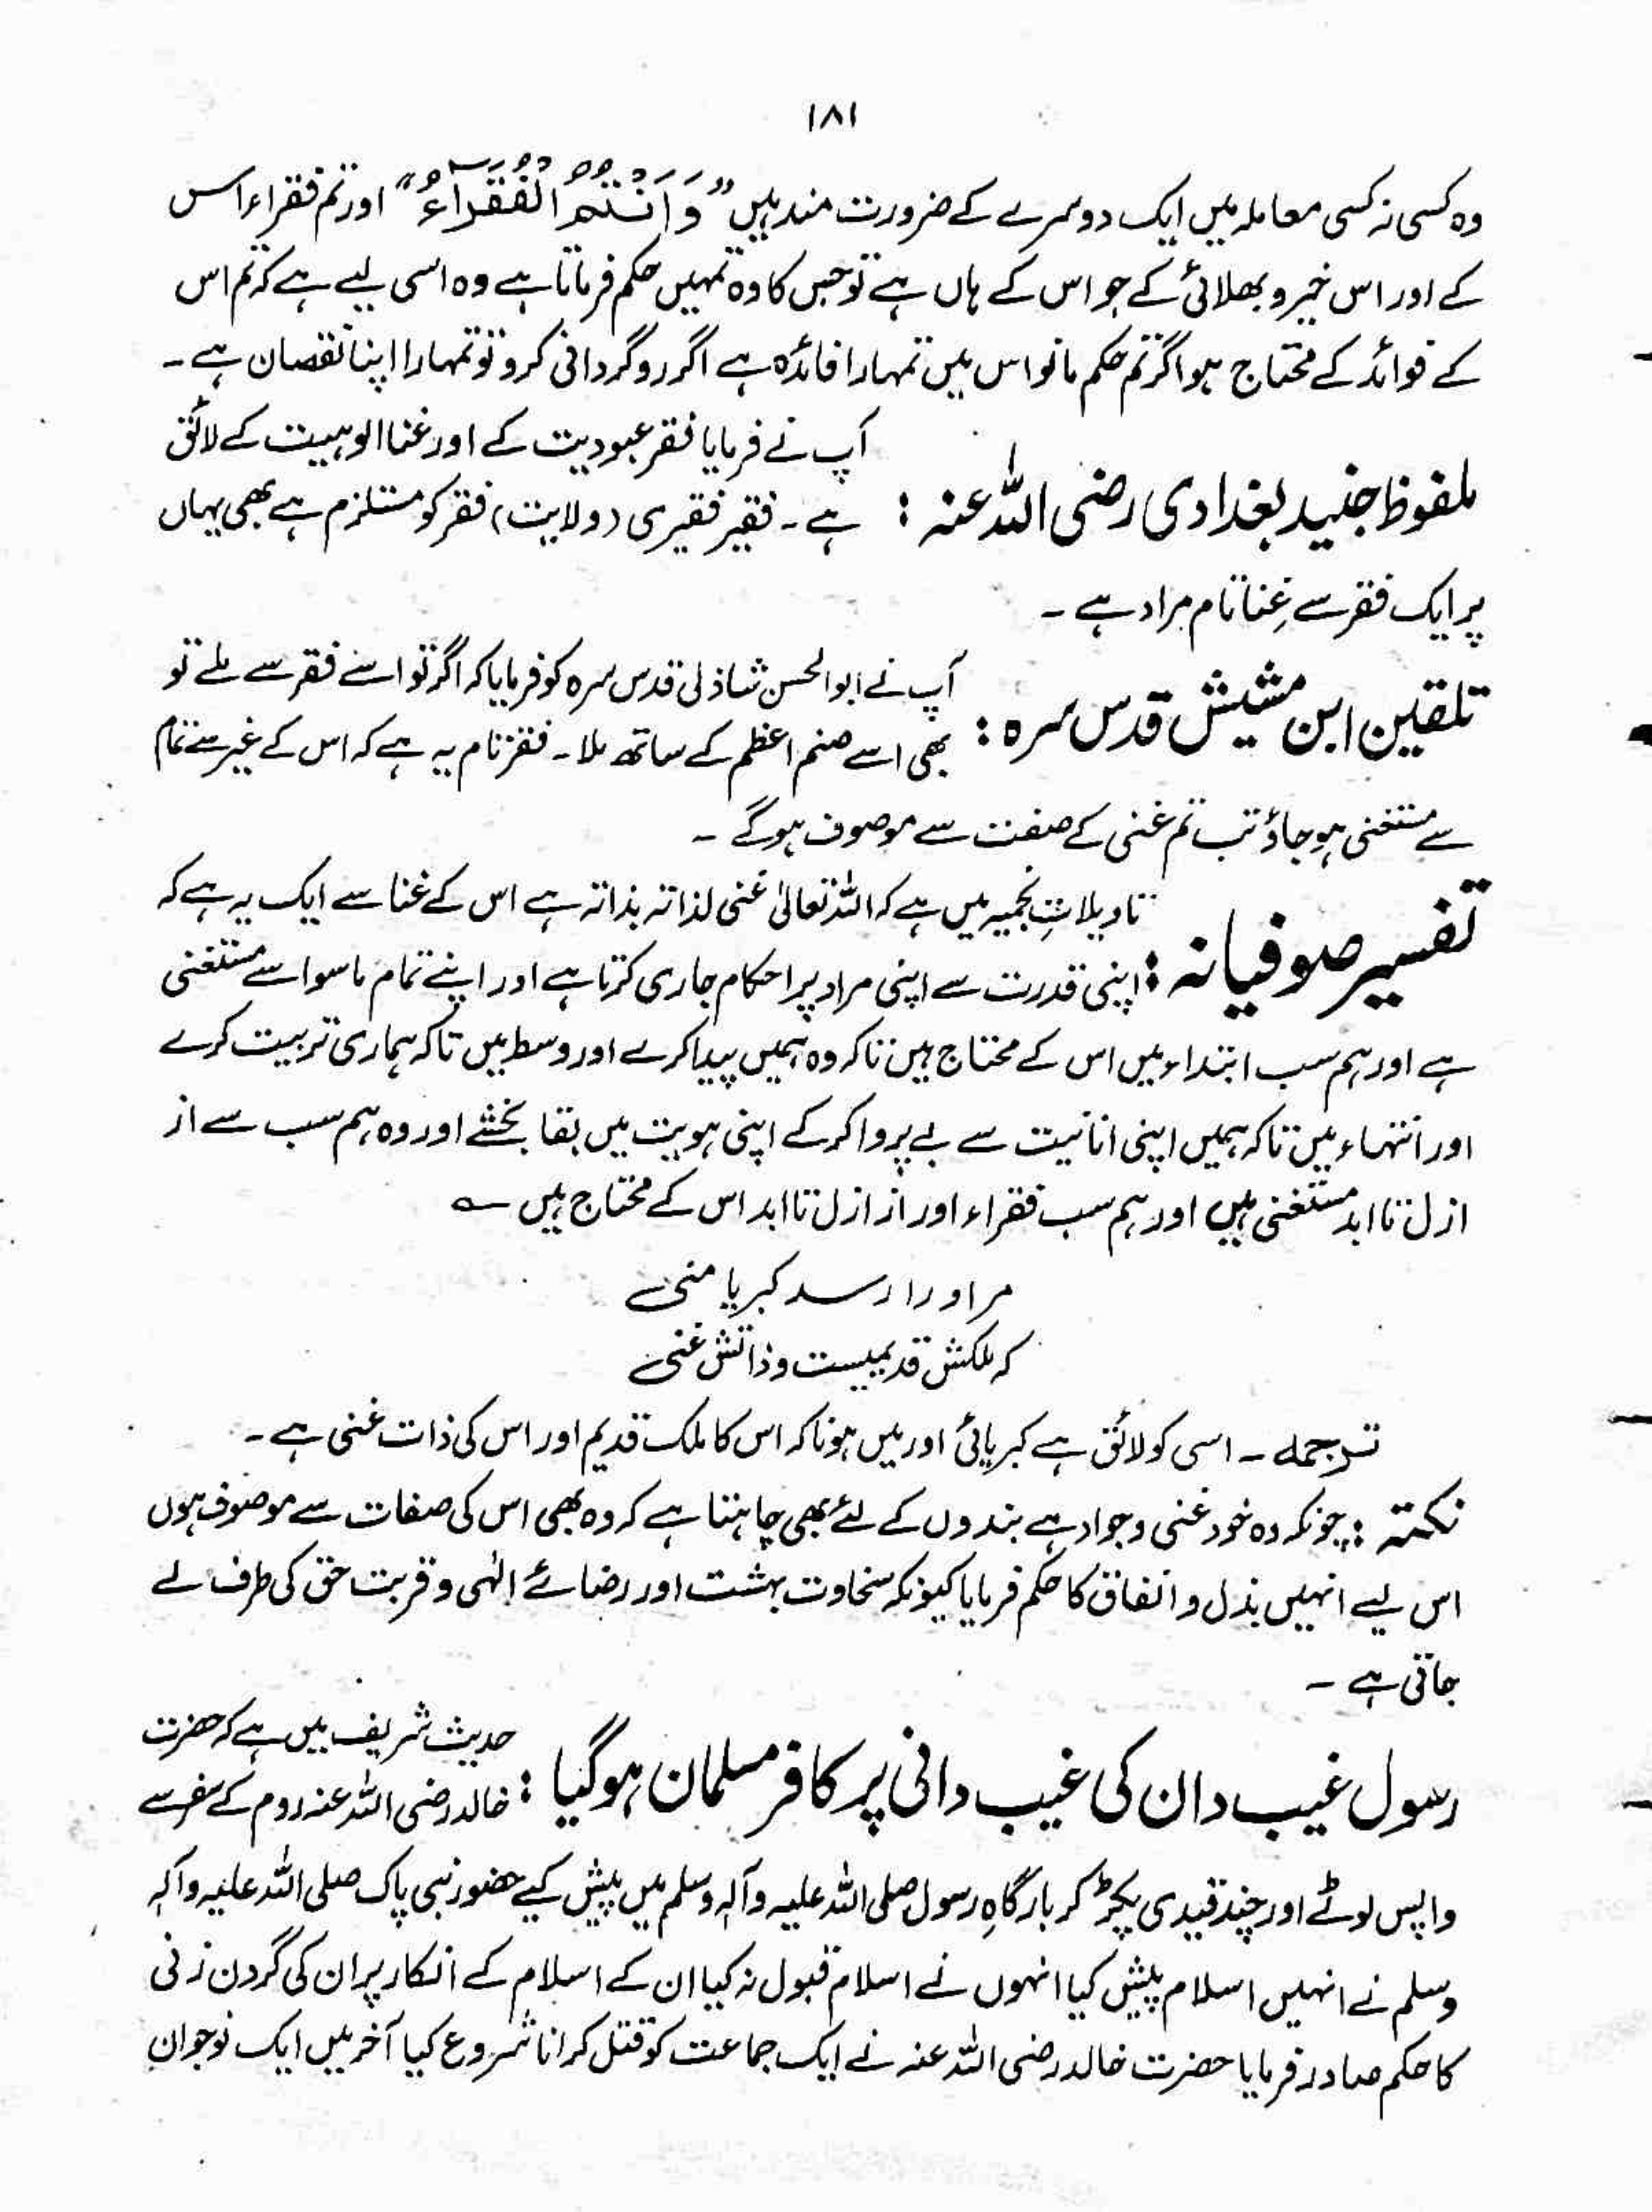 ۱۸۱
وہ کسی نہ کسی معاملہ میں ایک دوسرے کے ضرورت مند ہیں "وَاَنْتُمُ الْفُقَرَآءُ" اور تم فقراء اس
کے اور اس خیر و بھلائی کے جو اس کے ہاں ہے تو جس کا وہ تمہیں حکم فرماتا ہے وہ اسی لیے ہے کہ تم اس
کے فوائد کے محتاج ہو اگر تم حکم مانو اس میں تمہارا فائدہ ہے اگر روگردانی کرو تو تمہارا اپنا نقصان ہے۔
ملفوظ جنید بغدادی رضی اللہ عنہ : آپ نے فرمایا فقر عبودیت کے اور غنا الوہیت کے لائق
ہے۔ فقیر فقیری (ولایت) فقر کو مستلزم ہے بھی یہاں
پر ایک فقر سے غِنا تام مراد ہے ۔
تلقین ابن مشیش قدس سرہ : آپ نے ابوالحسن شاذلی قدس سرہ کو فرمایا کہ اگر تو اسے فقر سے ملے تو
بھی اسے صنم اعظم کے ساتھ ملا۔ فقر تام یہ ہے کہ اس کے غیر سے تمام
سے مستغنی ہو جاؤ تب تم غنی کے صفت سے موصوف ہو گے ۔
تفسیر صوفیانہ : تاویلاتِ نجمیہ میں ہے کہ اللہ تعالیٰ غنی لذاتہ بذاتہ ہے اس کے غنا سے ایک یہ ہے کہ
اپنی قدرت سے اپنی مراد پر احکام جاری کرتا ہے اور اپنے تمام ماسوا سے مستغنی
ہے اور ہم سب ابتداء میں اس کے محتاج ہیں تاکہ وہ ہمیں پیدا کرے اور وسط میں تاکہ ہماری تربیت کرے
اور انتہاء میں تاکہ ہمیں اپنی انانیت سے بے پروا کرکے اپنی ہویت میں بقا بخشے اور وہ ہم سب سے از
ازل تا ابد مستغنی ہیں اور ہم سب فقراء اور از ازل تا ابد اس کے محتاج ہیں ؎
مر او را رسد کبریا منی
کہ ملکش قدیمیست و ذاتش غنی
ترجمہ ۔ اسی کو لائق ہے کبریائی اور میں ہونا کہ اس کا ملک قدیم اور اس کی ذات غنی ہے ۔
نکتہ : چونکہ وہ خود غنی و جواد ہے بندوں کے لئے بھی چاہتا ہے کہ وہ بھی اس کی صفات سے موصوف ہوں
اس لیے انہیں بذل و انفاق کا حکم فرمایا کیونکہ سخاوت بہشت اور رضائے الٰہی و قربت حق کی طرف لے
جاتی ہے ۔
رسول غیب دان کی غیب دانی پر کافر مسلمان ہو گیا : حدیث شریف میں ہے کہ حضرت
خالد رضی اللہ عنہ روم کے سفر سے
واپس لوٹے اور چند قیدی پکڑ کر بارگاہِ رسول صلی اللہ علیہ وآلہ وسلم میں پیش کیے حضور نبی پاک صلی اللہ علیہ وآلہ
وسلم نے انہیں اسلام پیش کیا انہوں نے اسلام قبول نہ کیا ان کے اسلام کے انکار پر ان کی گردن زنی
کا حکم صادر فرمایا حضرت خالد رضی اللہ عنہ نے ایک جماعت کو قتل کرانا شروع کیا آخر میں ایک نوجوان